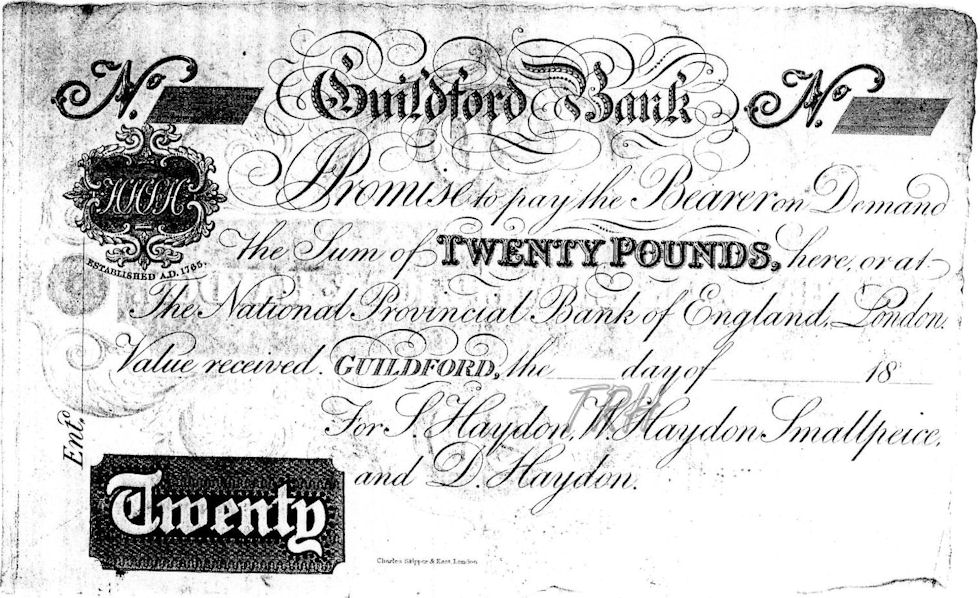 No.
Guildford Bank
No.
HHSH
ESTABLISHED A.D. 1765.
I Promise to pay the Bearer on Demand
the Sum of TWENTY POUNDS, here, or at
The National Provincial Bank of England, London.
Value received. GUILDFORD, the day of 18
TRH
For S. Haydon, W. Haydon Smallpeice,
and D. Haydon.
Entd.
Twenty
Charles Skipper & East, London